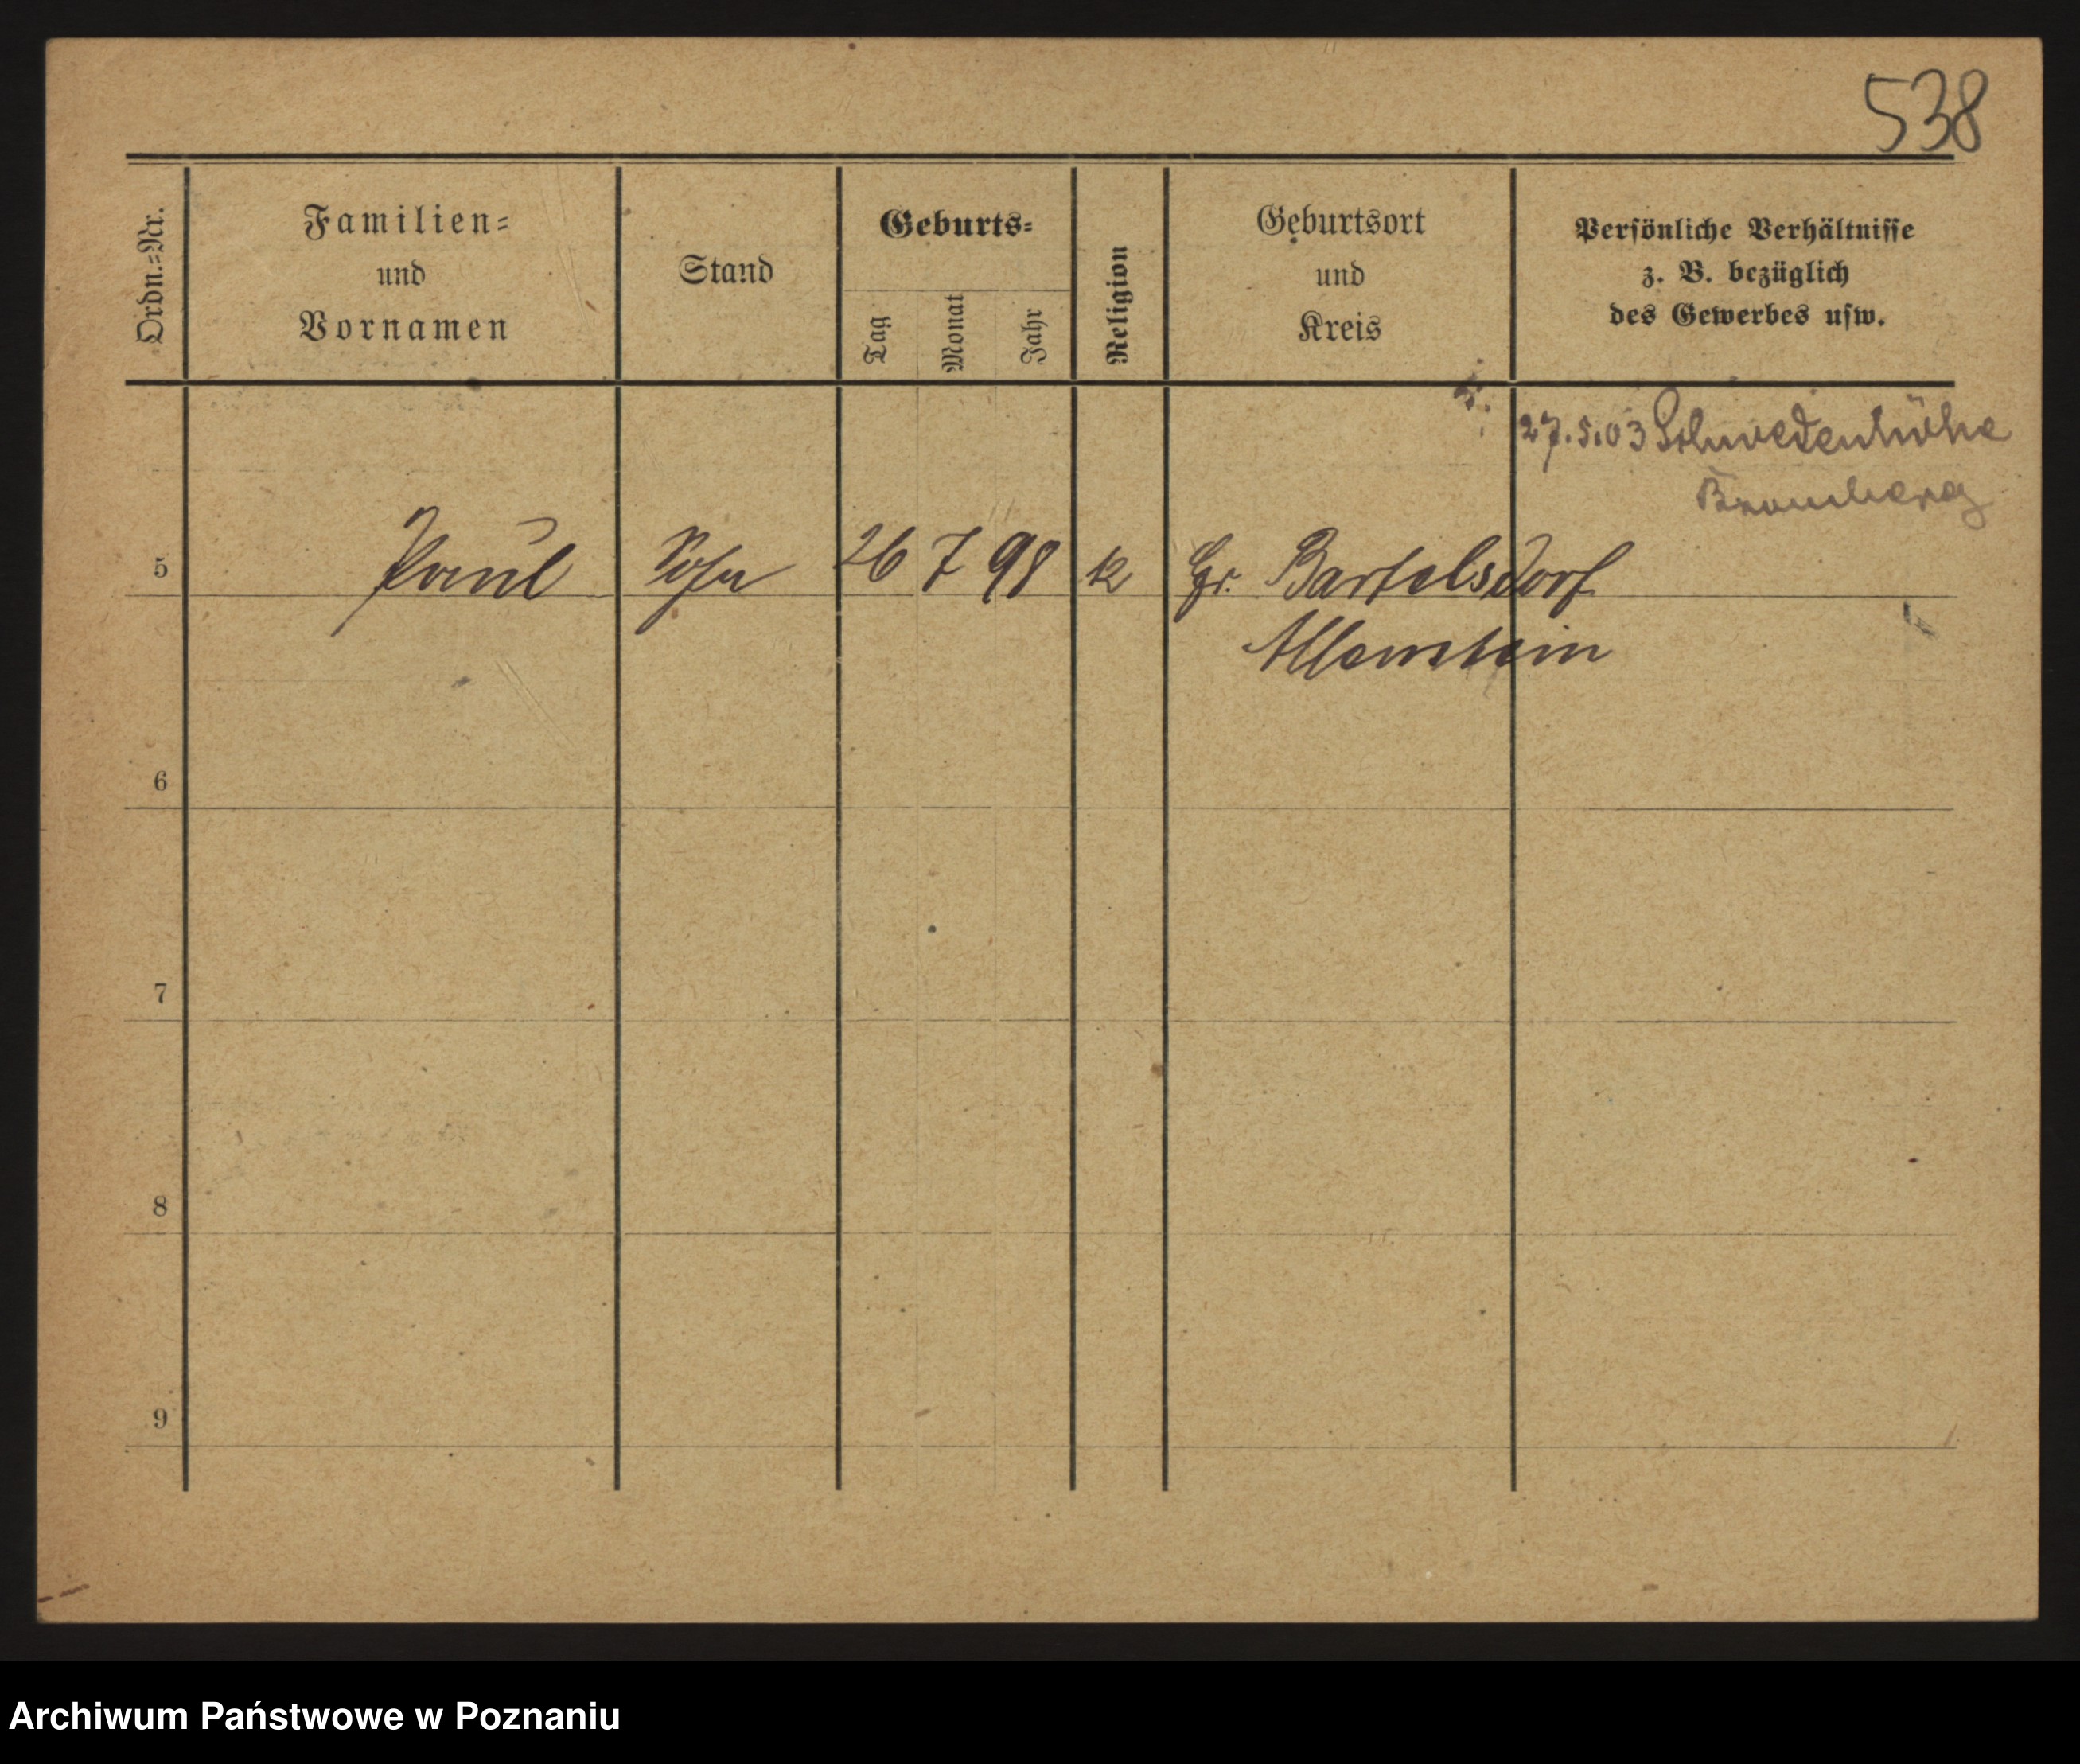 538
Ordn.=Nr.
Familien=
und
Vornamen
Stand
Geburts=
Tag
Monat
Jahr
Religion
Geburtsort
und
Kreis
Persönliche Verhältnisse
z. B. bezüglich
des Gewerbes usw.
27.5.03 Schwedenhöhe
Bromberg
5 Paul Sohn 26 7 98 k Gr. Bartelsdorf
Allenstein
6
7
8
9
Archiwum Państwowe w Poznaniu